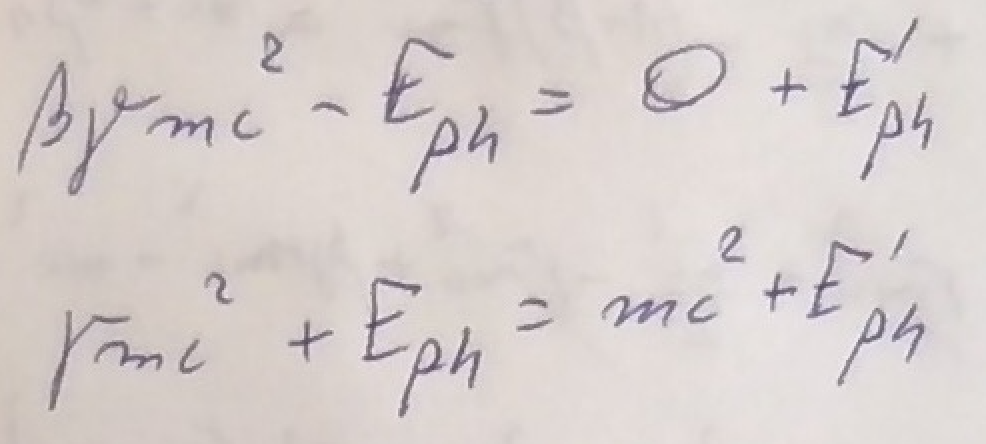 βγmc² - E_ph = 0 + E'_ph
γmc² + E_ph = mc² + E'_ph